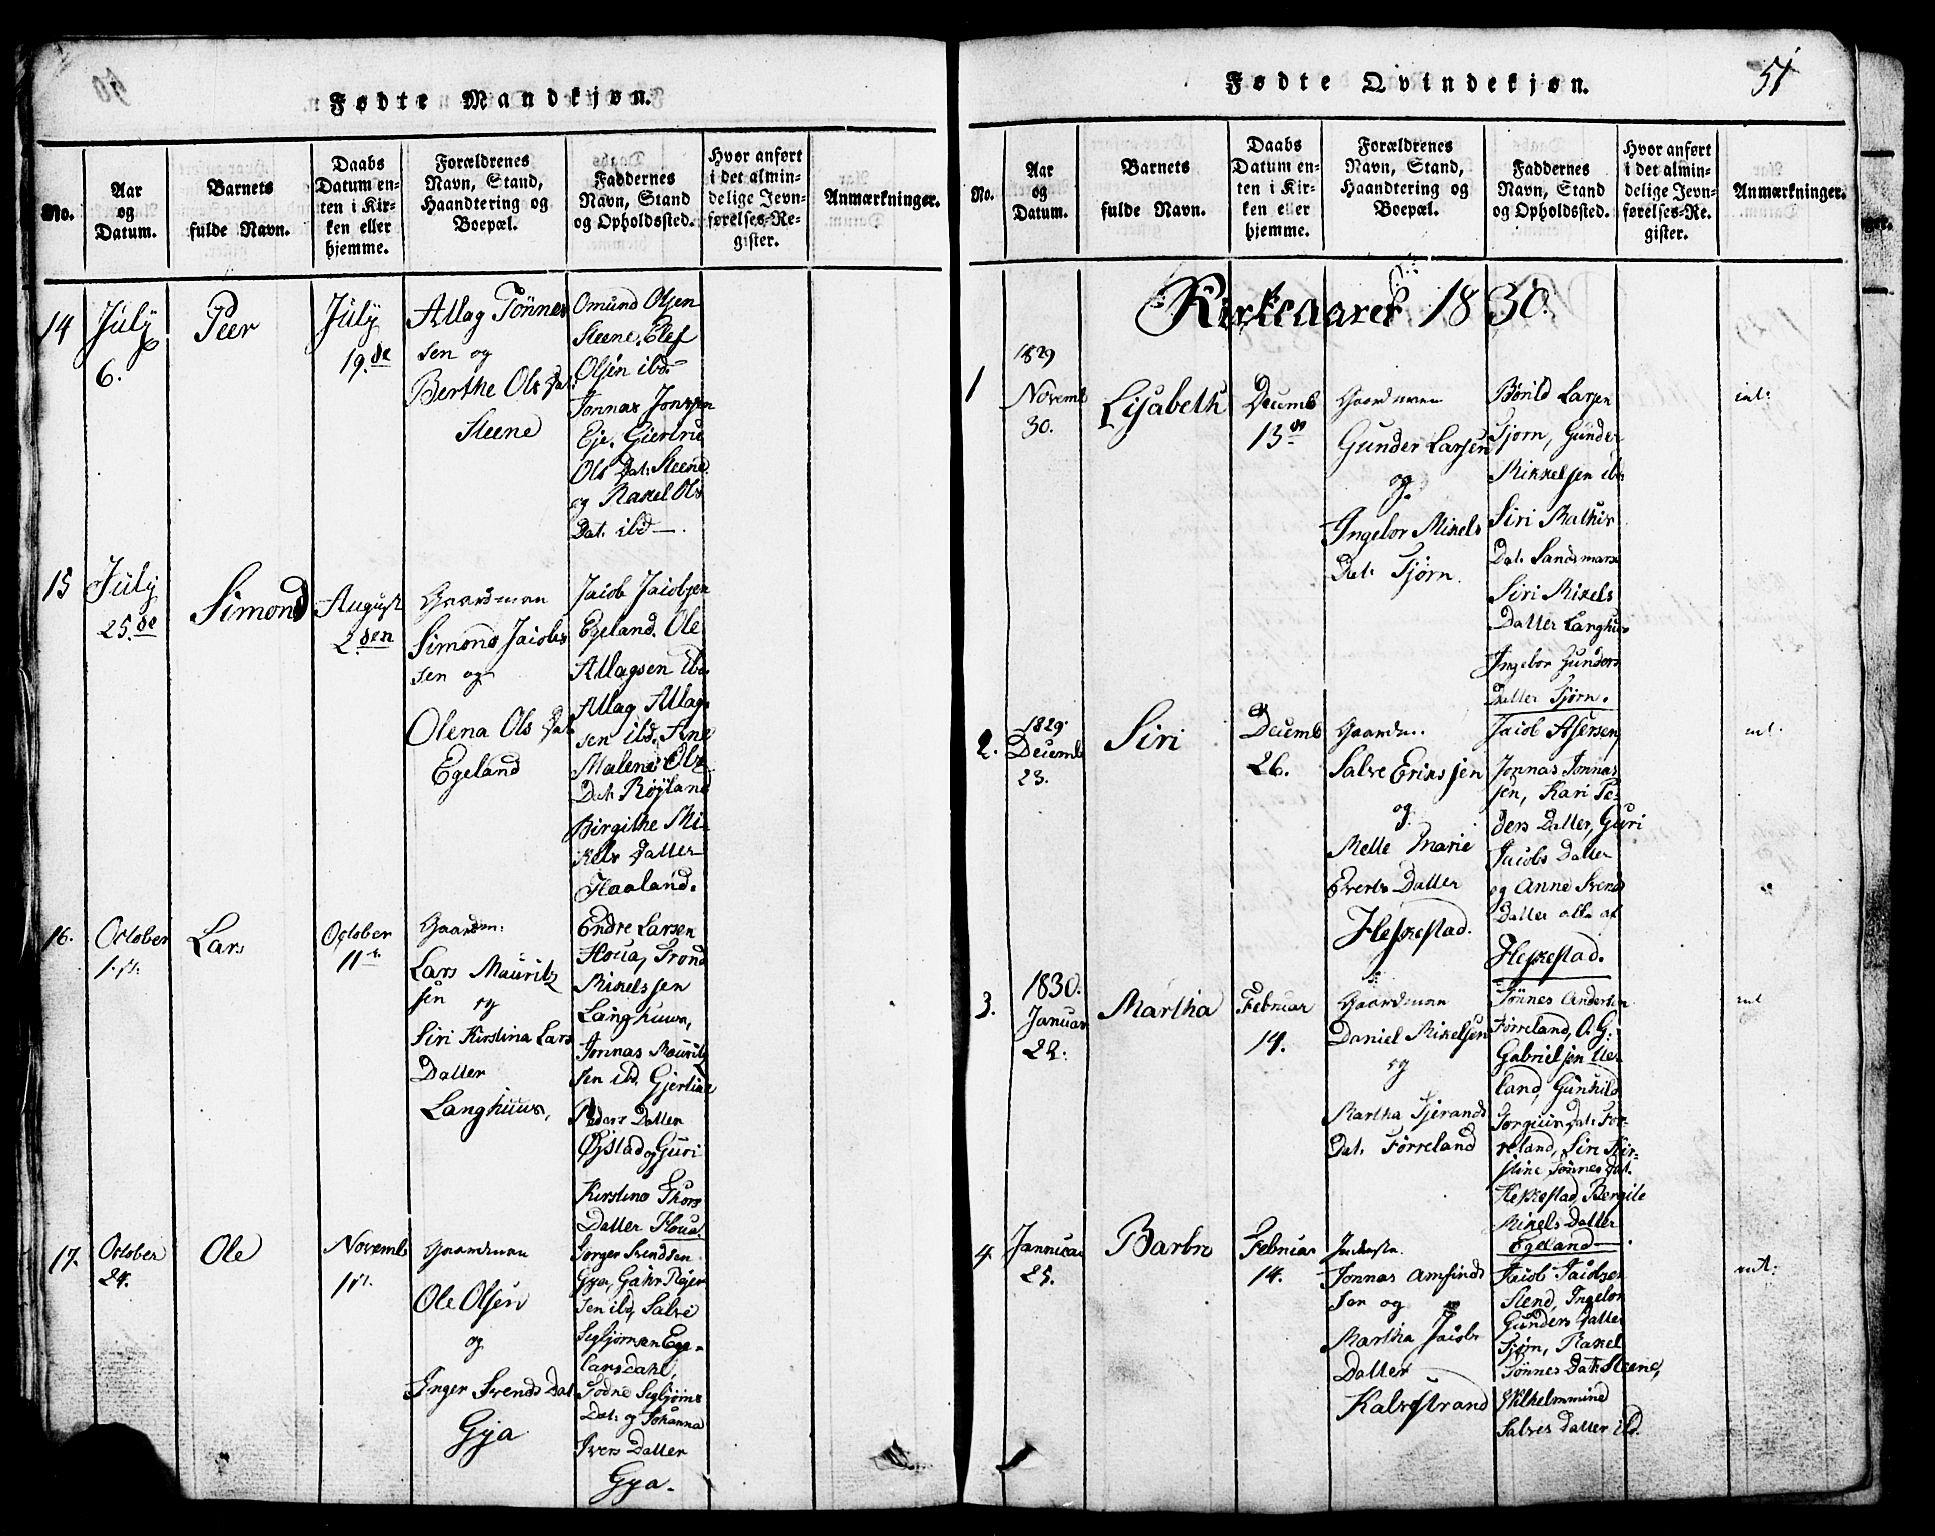 Fødte Mandkjøn.
No.
Aar
og
Datum.
Barnets
fulde Navn.
Daabs
Datum en-
ten i Kir-
ken eller
hjemme.
Forældrenes
Navn, Stand,
Haandtering og
Boepæl.
Faddernes
Navn, Stand
og Opholdssted.
Hvor anført
i det almin-
delige Jevn-
førelses-Re-
gister.
Anmærkninger.
14
July
6.
Peer
July
19.de
Atlag Tönnes
sen og
Berthe Ols Dat:
Steene
Omund Olsen
Steene, Elef
Olsen ibd.
Jonnas Jonssen
Eje, Giertru
Ols Dat: Steene
og Rakel Ols
Dat. ibd.
15
July
25.de
Simond
August
2den
Gaardman
Simond Jacobs
sen og
Olena Ols Dat
Egeland
Jacob Jacobsen
Egeland. Ole
Atlagsen ibd.
Atlag Atlag
sen ibd. Ane
Malene Ols
Dat. Röjland
Birgithe Mi-
kels Datter
Haaland.
16.
October
Lars
October
11
Gaardm:
Lars Mauritz
sen
og
Siri Kirstina Lars
Datter
Langhuus,
Endre Larsen
Houa, Trond
Mikelssen
Langhuus,
Jonnas Mauritz
sen ibd. Gjertine
Peders Datter
Øystad og Guri
Kirstine Thors
Datter Houa.
17.
October
24.
Ole
Novemb
Gaardman
Ole Olsen
og
Inger Svends Dat
Gya
Torger Svendsen
Gya, Gahr Rejer
sen ibd, Salve
Sigbjörnsen Ege-
landsdahl,
Todne Sigbjörns
Dat: og Johanna
Ivers Datter
Gya.
51
Fødte Qvindekjøn.
No.
Aar
og
Datum.
Barnets
fulde Navn.
Daabs
Datum en-
ten i Kir-
ken eller
hjemme.
Forældrenes
Navn, Stand,
Haandtering og
Boepæl.
Faddernes
Navn, Stand
og Opholdssted.
Hvor anført
i det almin-
delige Jevn-
førelses-Re-
gister.
Anmærkninger.
Kirkeaaret 1830.
1
1829
Novemb
30.
Lisabeth
Decemb
13
Gaardman
Gunder Larsen
og
Ingebor Mikels
Dat: Tjörn
Bönild Larsen
Tjorn, Gunder
Mikkelsen ibd
Siri
Dat: Sandsmark
Siri Mikels
Datter Langhuus
Ingebor Gunders
Datter Tjörn.
int:
2.
1829
Decemb
23.
Siri
Decemb
26.
Gaardm.
Salve Erikssen
og
Mette Marie
Everts Datter
Heskestad.
Jacob Asersen,
Jonnas Jonnas
sen, Kari Pe-
ders Datter, Guri
Jacobs Datter
og Anne Svend
Datter alle af
Heskestad.
int.
3.
1830.
Januar
22.
Martha
Februar
14.
Gaardman
Daniel Mikelsen
og
Martha Tjerands
Dat: Förreland
Tönnes Andersen
Förreland, O. G.
Gabrielsen Ue-
land, Gunhild
Torguun Dat: För-
reland, Siri Kir-
stine Tönnes Dat.
Heskestad, Bergite
Mikels Datter
Egeland
int
4.
Januar
25.
Barbro
Februar
14.
Jonnas Amfinds
sen og
Martha Jacobs
Datter
Kalvestrand
Jacob Jacobsen
Stend, Ingebor
Gunders Datter
Tjörn, Rakel
Tönnes Dat: Steene,
Wilhelmmine
Salves Datter ibd.
int: